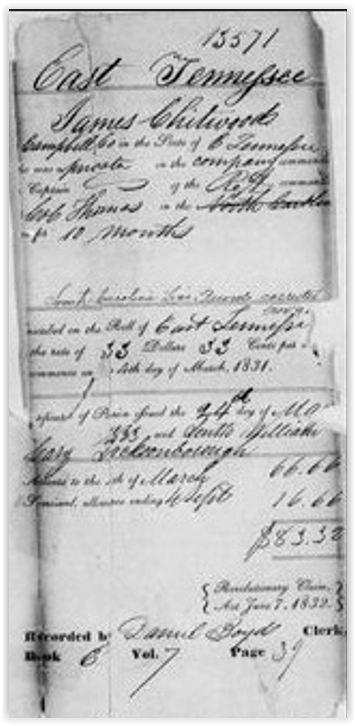 13571
East Tennessee
James Chitwood
Campbell Co in the State of E Tennessee
was a private in the company commanded
Captain of the Regt commanded
Col Thomas in the North Carolina
for 10 months
South Carolina Line Records corrected
inscribed on the Roll of East Tennessee
the rate of 33 Dollars 33 Cents per
commence on 4th day of March, 1831.
of Pension issued the 24th day of Ma
333 and William
Jacksonborough
to the 4th of March 66.66
ending 4 Sept 16.66
$83.32
{ Revolutionary Claim, }
{ Act June 7, 1832. }
Recorded by Daniel Boyd Clerk,
Book E Vol. 7 Page 39